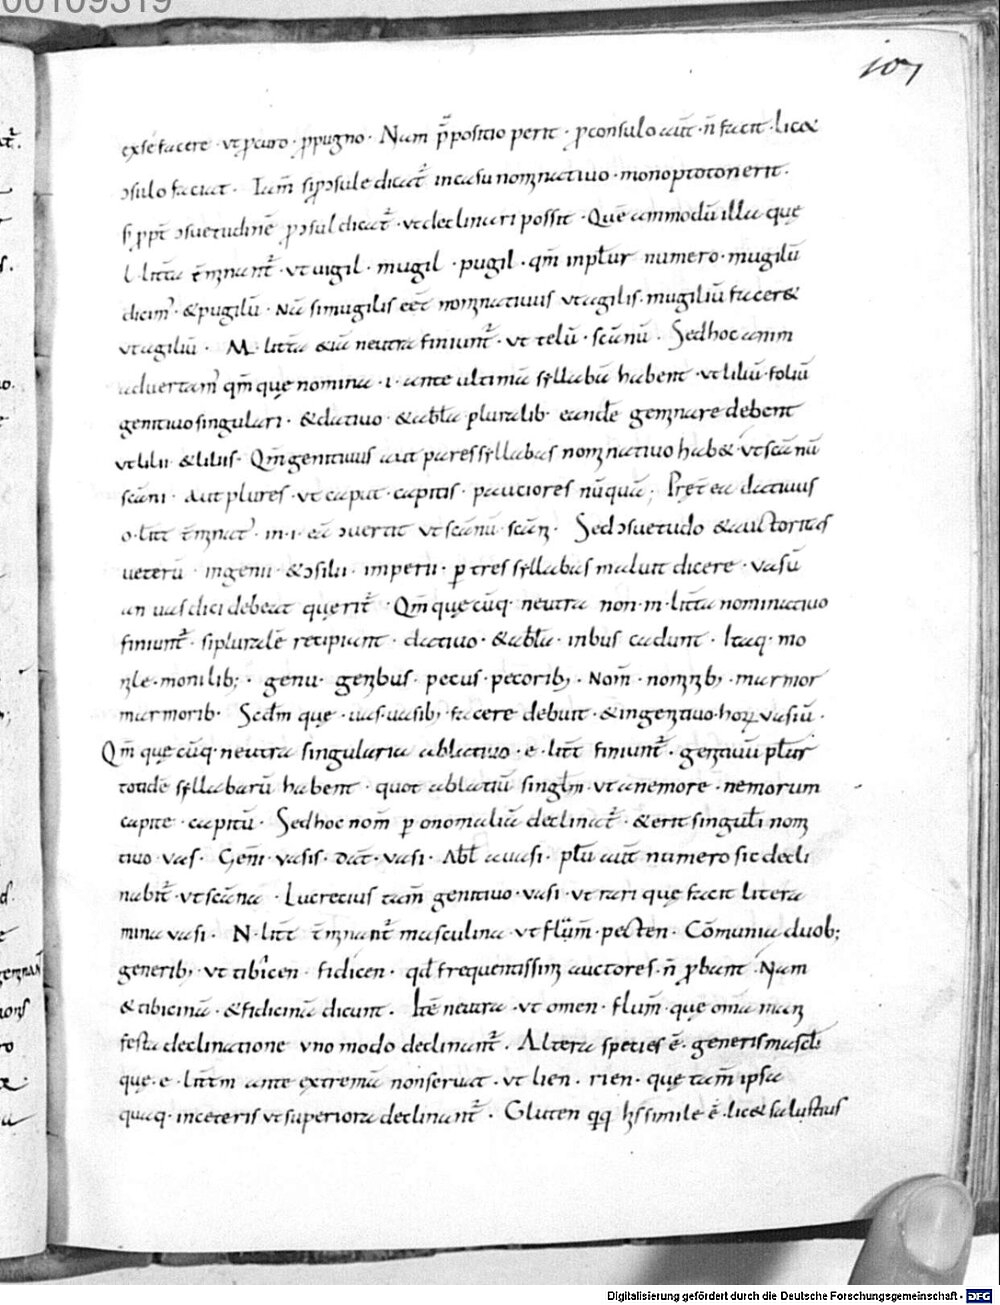 00109319
107
exsé facere · ut ꝓcuro · ꝓpugno · Nam p̄positio perit · ꝓconsulo aut̄ · n̄ facit · lic&
ↄsulo faciat · Iam̄ si ꝓↄsule dicat᷑ in casu nomnatiuo · monoptoton erit ·
s; ꝓpt̄ ↄsuetudinē ꝓↄsul dicat᷑ · ut declinari possit · Quē ammodū illa quę
l · litt̄a t̄mnant᷑ · ut uigil · mugil · pugil · qm̄ in plur̄ numero · mugilū
dicim᷒ · & pugilū · Nā si mugilis eēt nomnatiuus ut agilis · mugiliū facer&
ut agiliū · M · litt̄a &iā neutra finiunt᷑ · ut telū · scānū · Sed hoc anim
aduertam᷒ qm̄ quę nomina · i · ante ultimā syllabā habent · ut liliū · foliū
genitiuo singulari · & datiuo & abłła pluralib · eandē gemnare debent
ut lilii · & liliis · Qm̄ genitiuus aut pares syllabas nomnatiuo hab& · ut scānū
scāni · Aut plures · ut caput · capitis · pauciores nūquā ; Pręt̄ ea datiuus
o · litt̄ t̄mnat᷑ · in · i · eā ↄuertit ut scānū scān · Sed ↄsuetudo & auctoritas
ueterū · ingenii · & ↄsilii · imperii · p̱ tres syllabas maluit dicere · Vasū
an uas dici debeat quęrit᷑ · Qm̄ quęcūq · neutra non · m · litt̄a nominatiuo
finiunt᷑ · si pluralē recipiunt · datiuo · & abłła · in bus cadunt · Itaq · mo
nıle · monilib; · genu · genıbus · pecus · pecorib; · Nom̄ · nomnıb; · marmor
marmorib · Scdm̄ quę · uas · uasib; facere debuit · & in genıtiuo · hoꝝ uasiū ·
Qm̄ quęcūq · neutra singularia ablatiuo · e · litt̄ finiunt᷑ · genıtiuū plur̄
totidē syllabarū habent · quot ablatiū singlm̄ · ut a nemore · nemorum
capite · capitū · Sed hoc nom̄ p̱ onomaliā declinat᷑ · & erit singułi nom
tiuo vas · Geni̅ vasis · Dat̄ · vasi · Abł a uasi · plū aut̄ numero sic decli
nabit᷑ · ut scāna · Lucrecius tam̄ genitiuo · vasi · ut rari quę facit litera
mina vasi · N · litt̄ t̄mnant᷑ masculina · ut flum̄ · pecten · Cōmunia duob;
generib; ut tibicen · fidicen · qd̄ frequentissim auctores · n̄ ꝓbant · Nam
& tibicinā · & fidicinā dicunt · Itē neutra · ut omen · flum̄ · quę oma man
festa declinatione uno modo declinant᷑ · Altera species ē · generis mascłi
quę · e · litt̄m ante extremā non seruat · ut lien · rien · quę tam̄ ipsa
quaq · in ceteris ut superiora declinant᷑ · Gluten qq his simile ē · lic& salustius
Digitalisierung gefördert durch die Deutsche Forschungsgemeinschaft - DFG